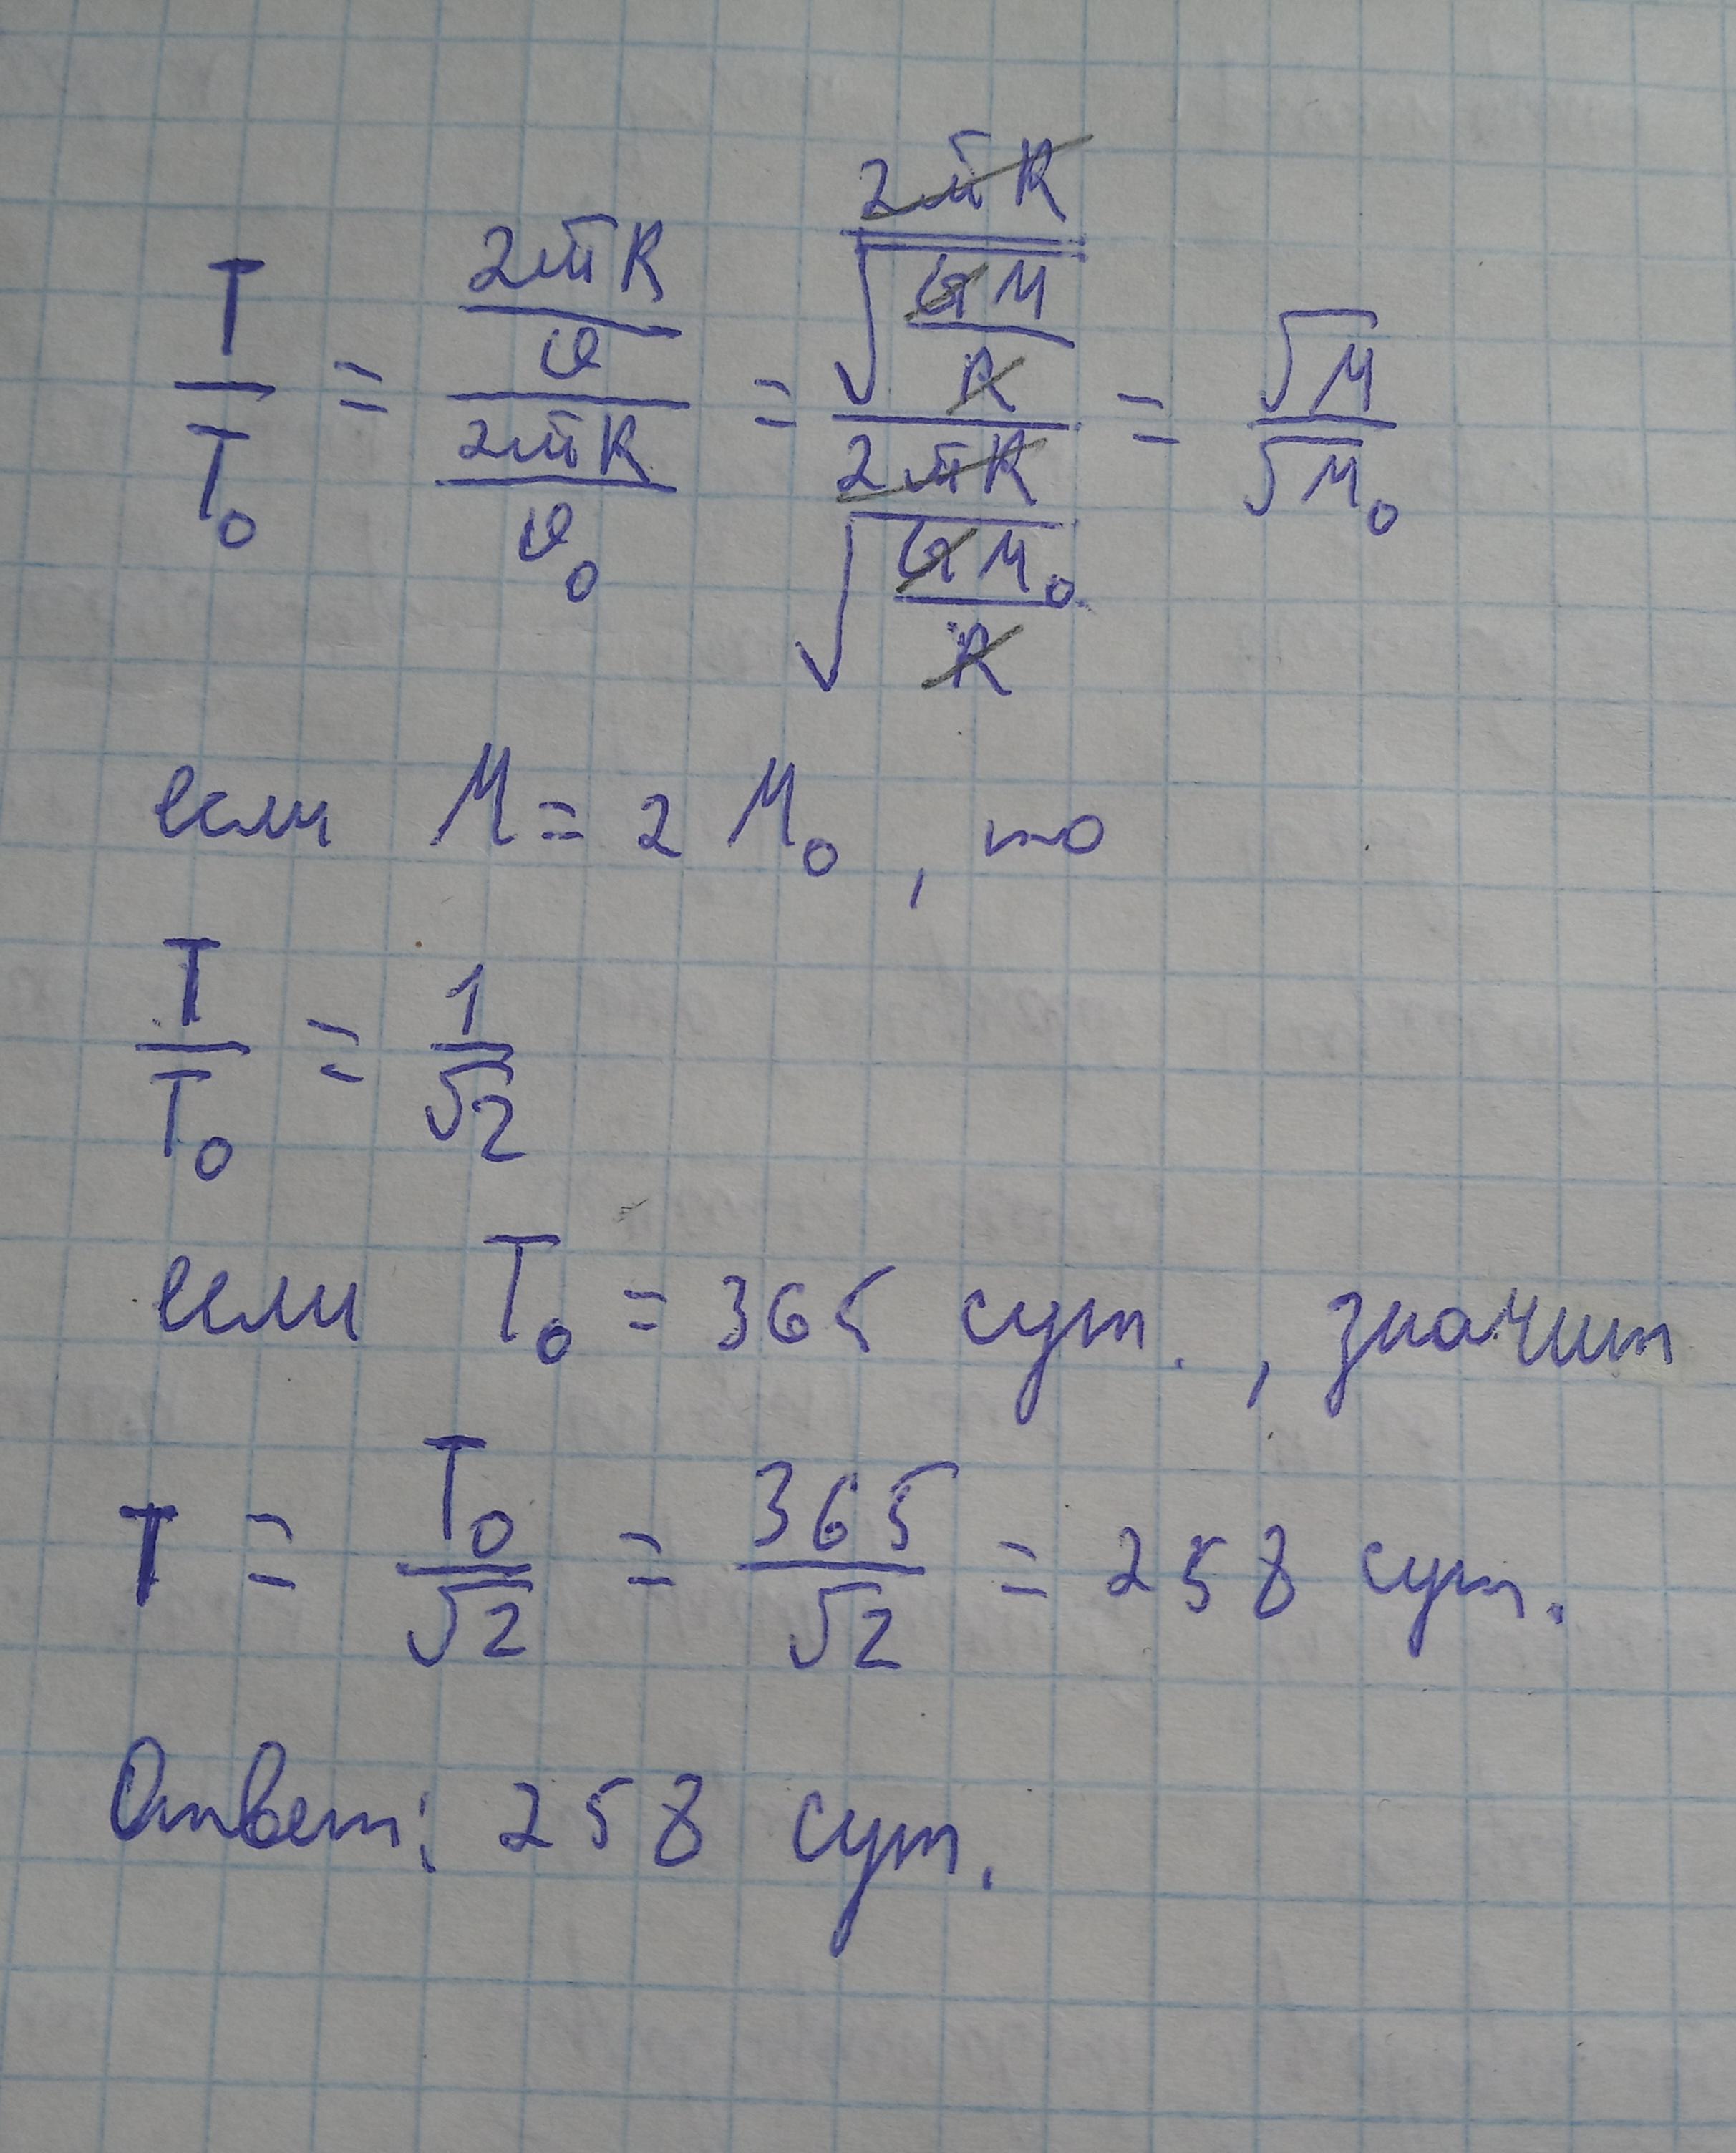 T/T₀ = (2πR/υ)/(2πR/υ₀) = (2πR/√(GM/R))/(2πR/√(GM₀/R)) = √M/√M₀
если M = 2 M₀, то
T/T₀ = 1/√2
если T₀ = 365 сут., значит
T = T₀/√2 = 365/√2 = 258 сут.
Ответ: 258 сут.